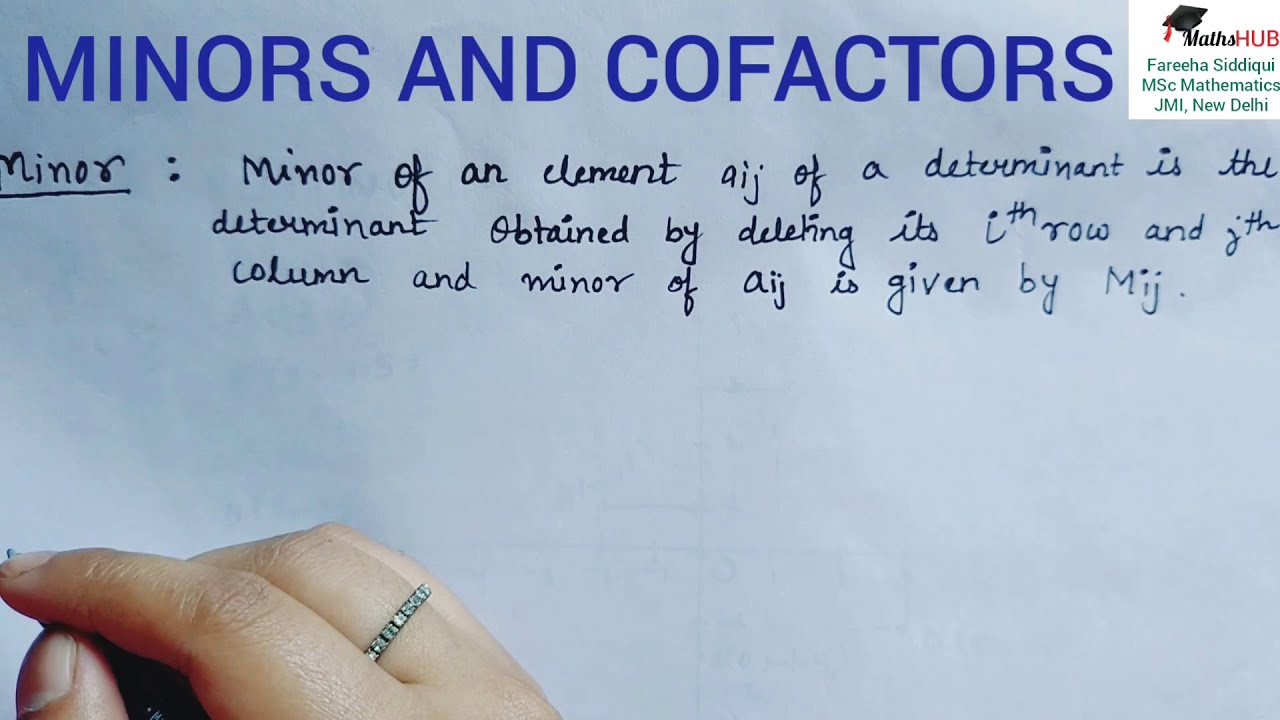 MINORS AND COFACTORS
MathsHUB
Fareeha Siddiqui
MSc Mathematics
JMI, New Delhi
Minor : Minor of an element aij of a determinant is the
determinant Obtained by deleting its i^th row and j^th
column and minor of aij is given by Mij.